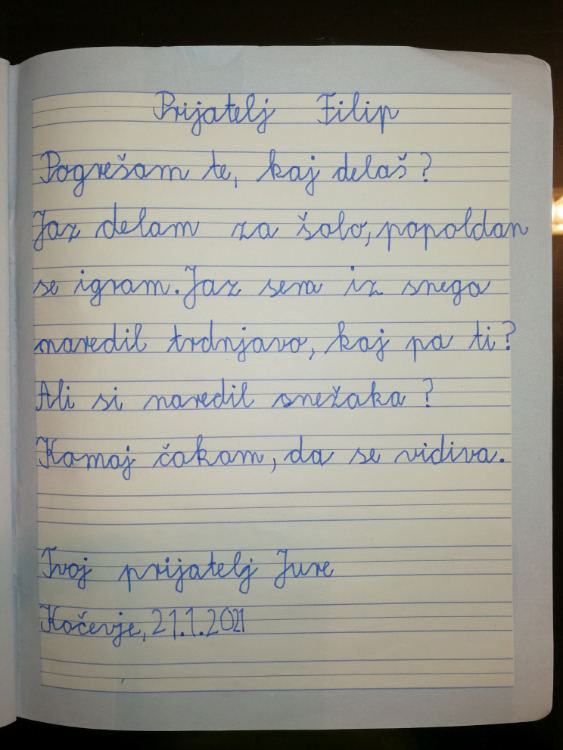 Prijatelj Filip
Pogrešam te, kaj delaš?
Jaz delam za šolo, popoldan
se igram. Jaz sem iz snega
naredil trdnjavo, kaj pa ti?
Ali si naredil snežaka?
Komaj čakam, da se vidiva.
Tvoj prijatelj Jure
Kočevje, 21.1.2021